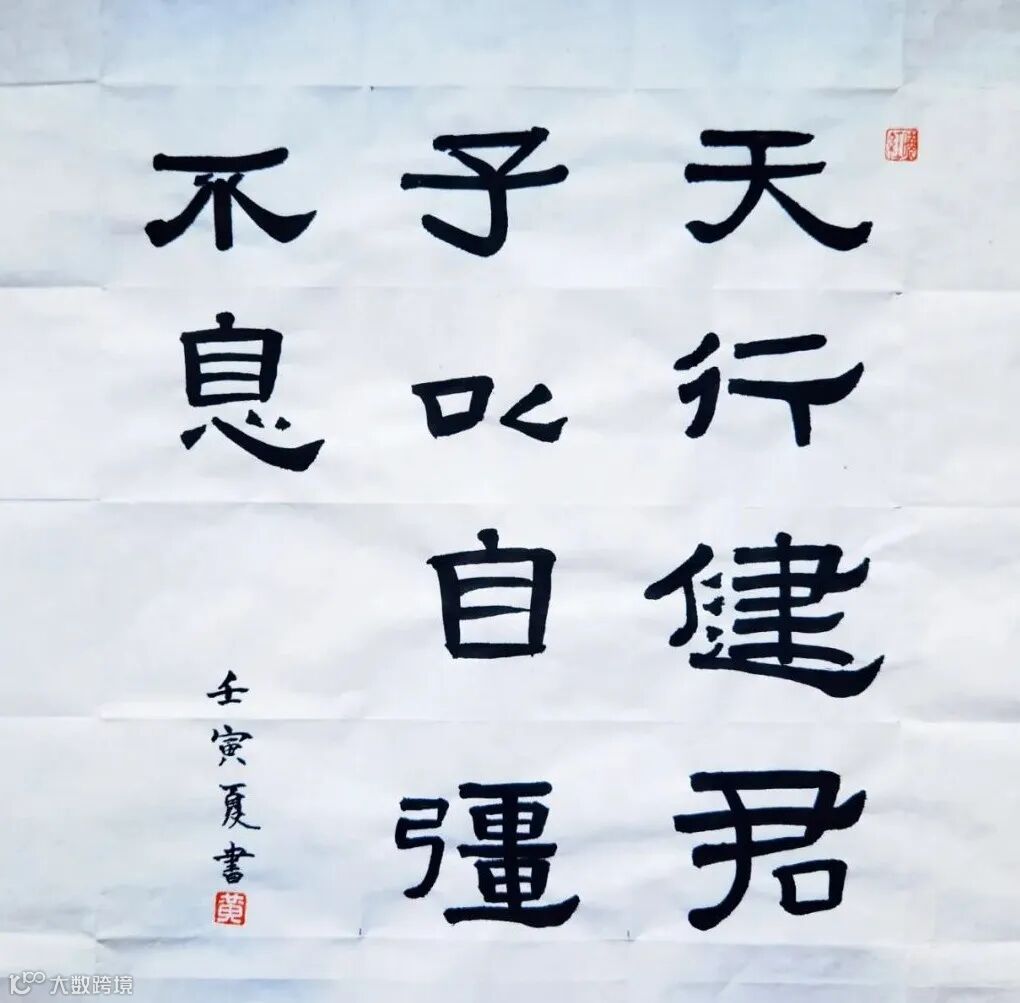 天行健君
子以自彊
不息
壬寅夏書
黄
大数跨境